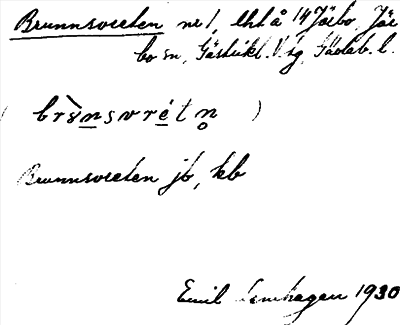 Brunnsvreten nr 1, lht å 14 Järbo, Jär
bo sn, Gästrikl. V. tg, Gävleb. l.
( brùnsvrét n̥ )
Brunnsvreten jb, kb
Emil Lenhagen 1930